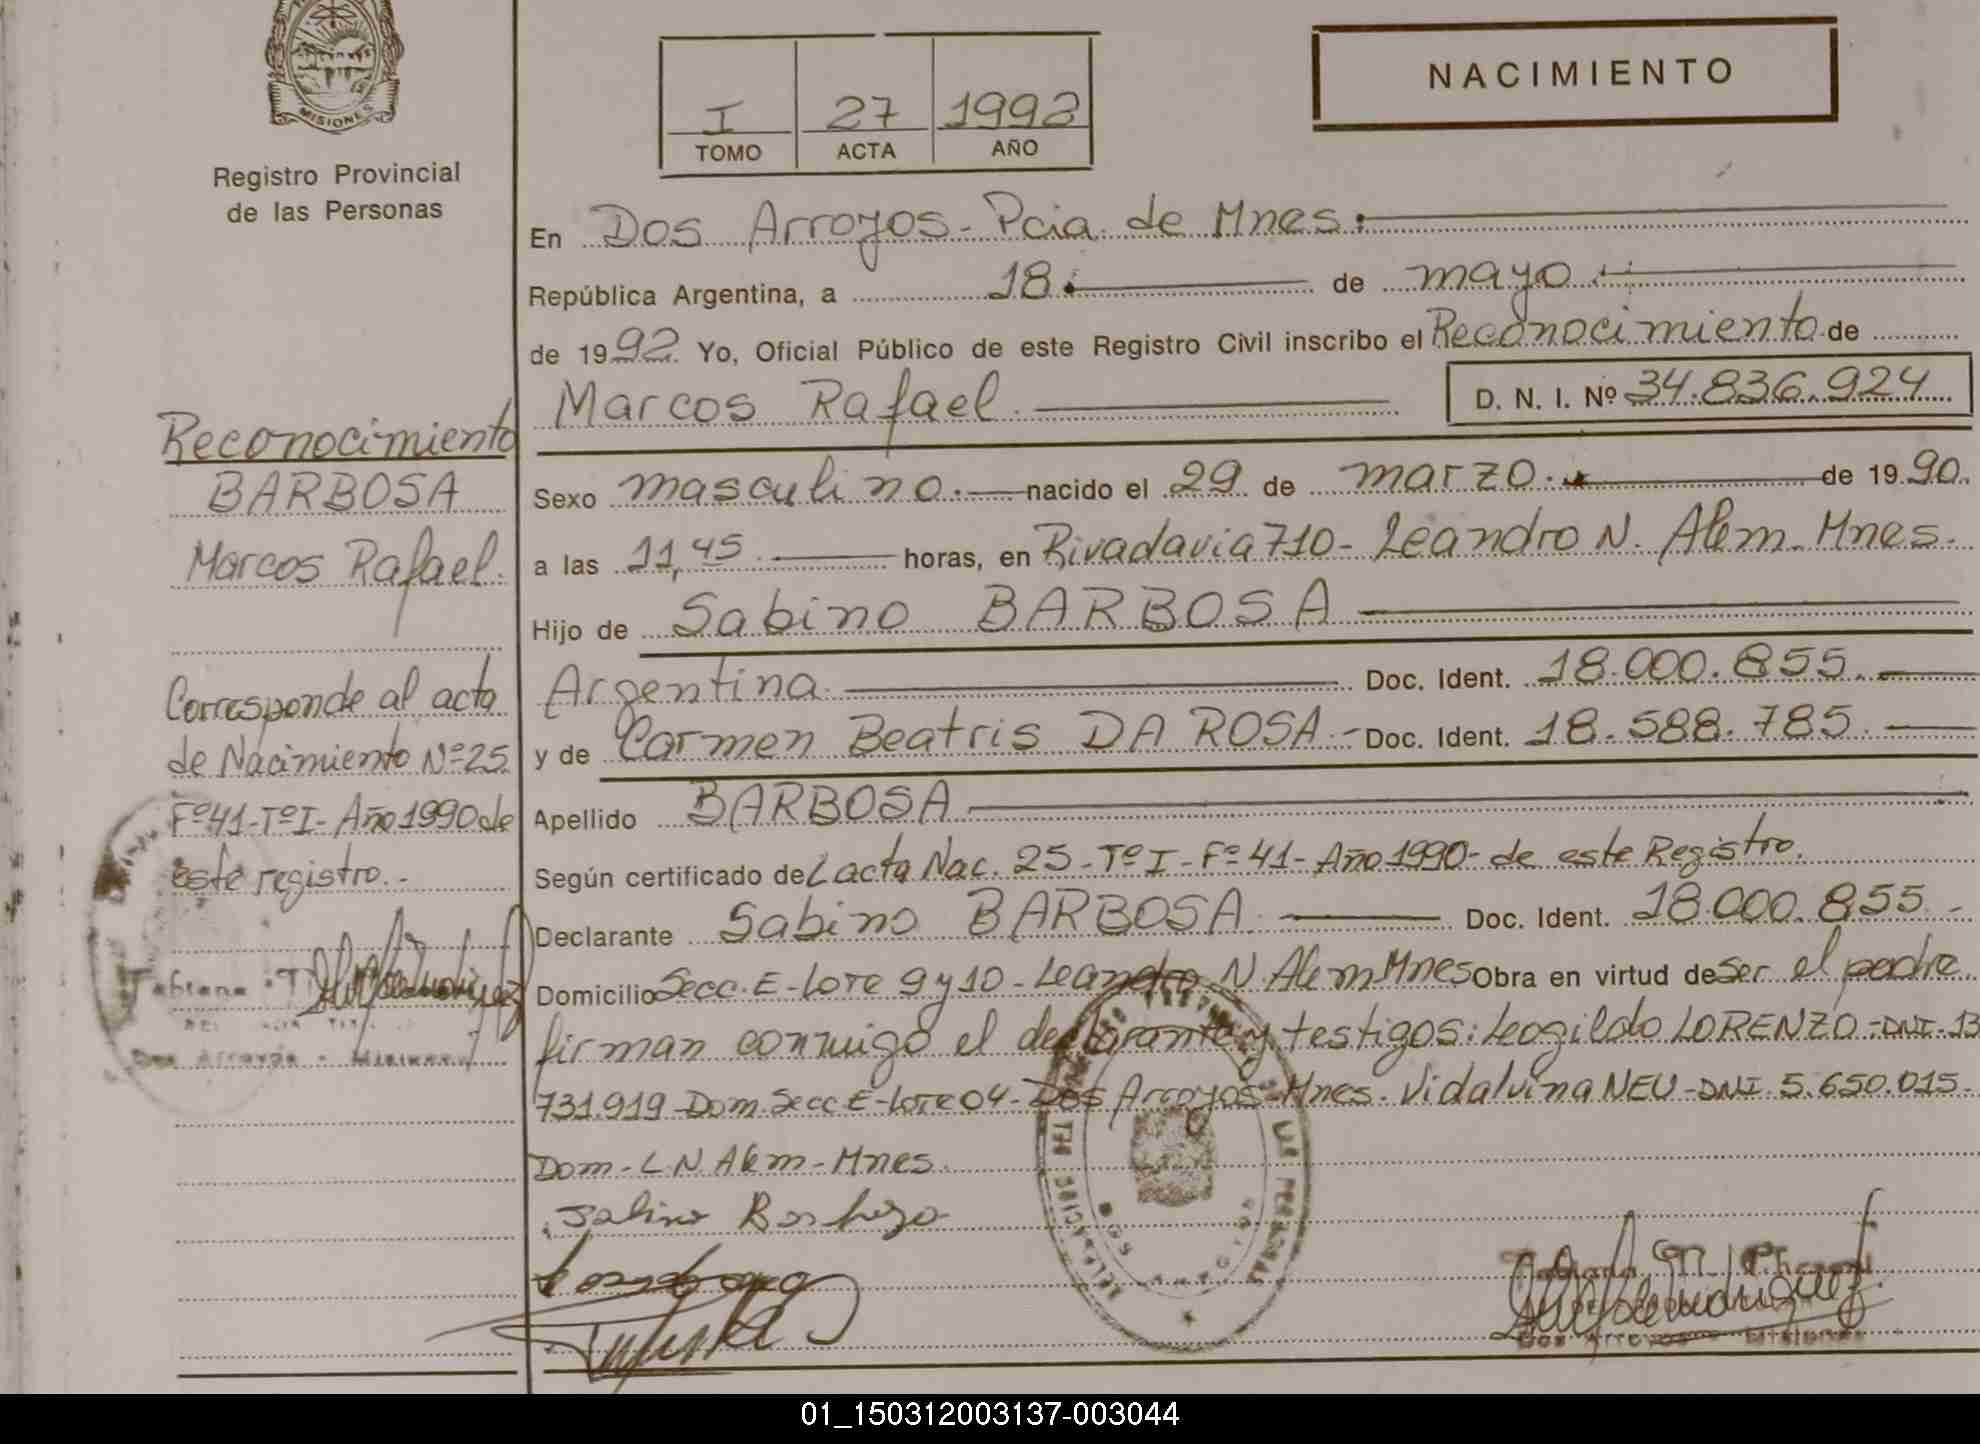 MISIONES
Registro Provincial
de las Personas
I 27 1992
TOMO ACTA AÑO
NACIMIENTO
En Dos Arroyos - Pcia. de Mnes.
República Argentina, a 18 de mayo
de 1992 Yo, Oficial Público de este Registro Civil inscribo el Reconocimiento de
Marcos Rafael. D. N. I. Nº 34.836.924
Sexo masculino. nacido el 29 de marzo. de 1990.
a las 11,45 horas, en Rivadavia 710 - Leandro N. Alem. Mnes.
Hijo de Sabino BARBOSA
Argentina. Doc. Ident. 18.000.855.
y de Carmen Beatris DA ROSA.- Doc. Ident. 18.588.785.
Apellido BARBOSA
Según certificado de L acta Nac. 25 - Tº I - Fº 41 - Año 1990 - de este Registro.
Declarante Sabino BARBOSA. Doc. Ident. 18.000.855.-
Domicilio Secc. E - Lote 9 y 10 - Leandro N. Alem Mnes Obra en virtud de ser el padre
firman conmigo el declarante y testigos: Leogildo LORENZO - DNI - 13
731.919 - Dom. Secc E - Lote 04 - Dos Arroyos - Mnes. Vidalvina NEU - DNI. 5.650.015.
Dom - L N Alem - Mnes.
Sabino Barboza
Reconocimiento
BARBOSA
Marcos Rafael.
Corresponde al acta
de Nacimiento Nº 25
Fº 41 - Tº I - Año 1990 de
este registro.-
Fabiana
Dos Arroyos - Misiones
Dos Arroyos Misiones
01_150312003137-003044